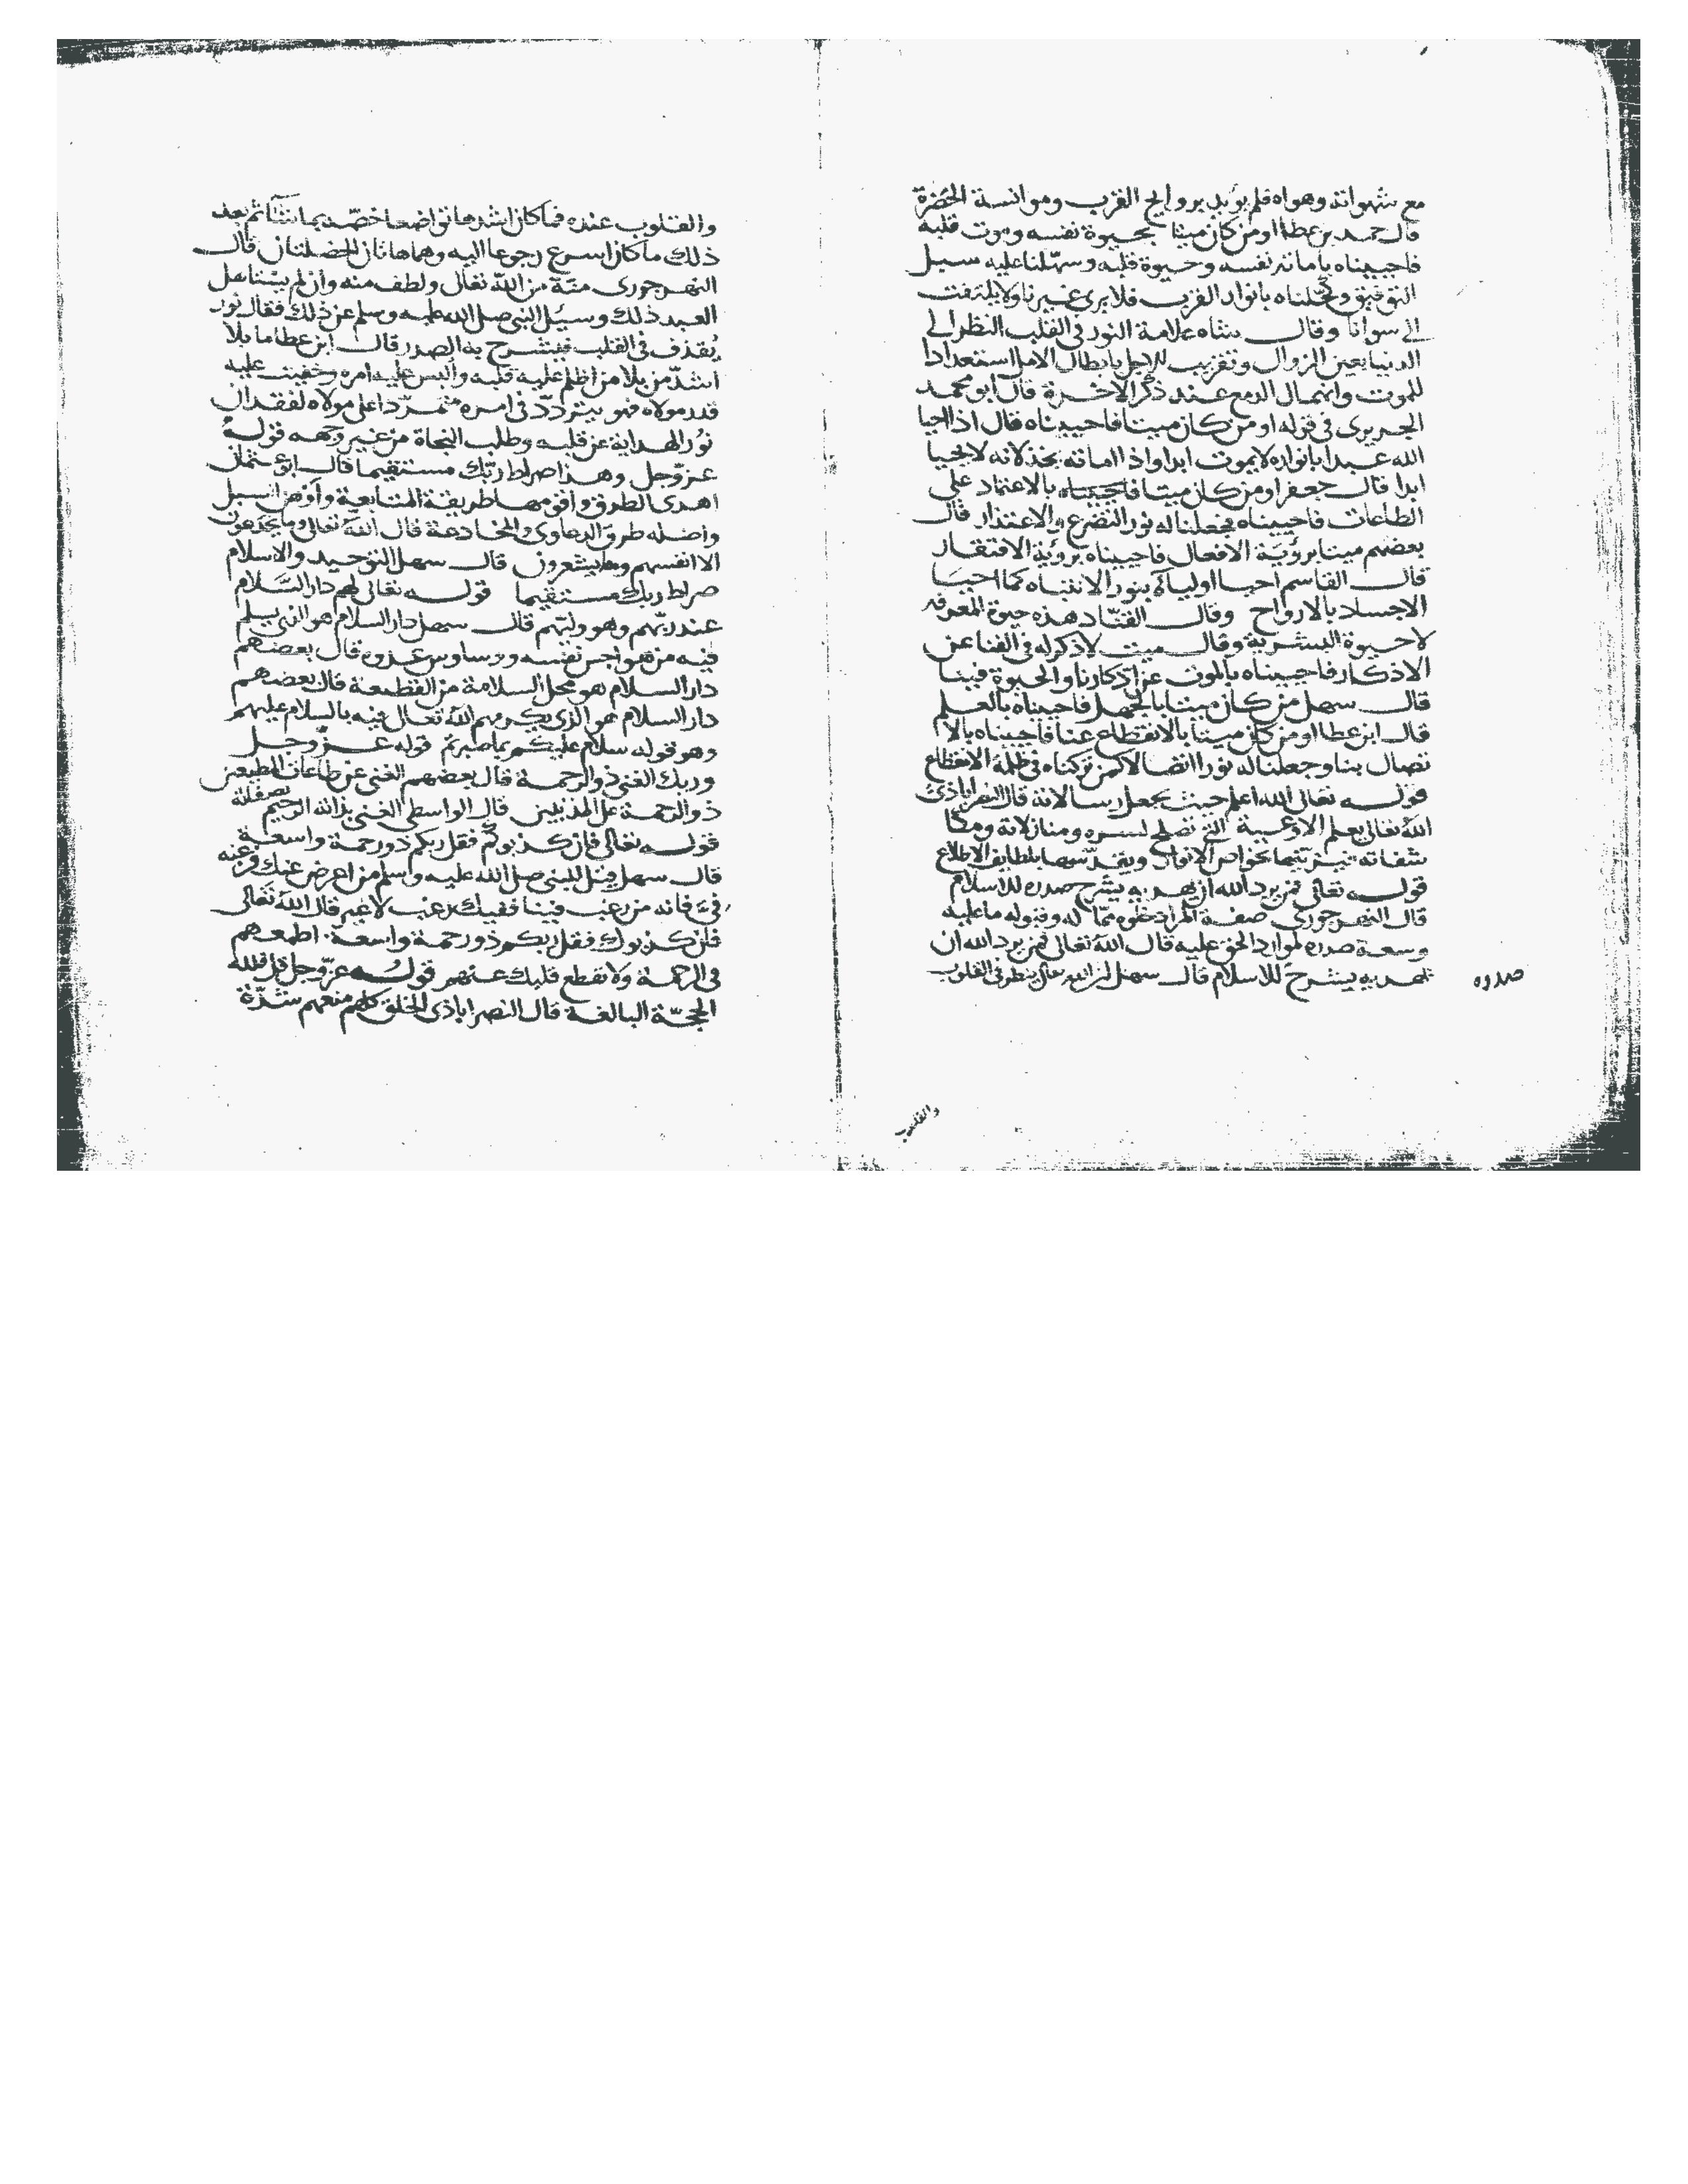 مع شهواته وهواه فلم يؤيد بروايح القرب وموانسة الحضرة
قال حمد بن عطا او من كان ميتا بحيوة نفسه وموت قلبه
فاحييناه باماتة نفسه وحيوة قلبه وسهلنا عليه سبيل
التوفيق وكحلناه بانوار القرب فلا يرى غيرنا ولا يلتفت
الى سوانا وقال شاه علامة النور في القلب النظر الى
الدنيا بعين الزوال وتقريب الاجل بابطال الامل استعدادا
للموت وانهمال الدمع عند ذكر الاخرة قال ابو محمد
الجريرى في قوله او من كان ميتا فاحييناه قال اذا احيا
الله عبدا بانواره لا يموت ابدا واذا اماته بخذلانه لا يحيا
ابدا قال جعفر او من كان ميتا فاحييناه بالاعتماد على
الطاعات فاحييناه فجعلنا له نور التضرع والاعتذار قال
بعضهم ميتا برؤية الافعال فاحييناه برؤية الافتقار
قال القاسم احيا اولياه بنور الانتباه كما احيا
الاجساد بالارواح وقال القتاد هذه حيوة المعرفه
لا حيوة البشرية وقال ميت لاذكر له في الفنا عن
الاذكار فاحييناه بالموت عن اذكارنا والحيوة فينا
قال سهل من كان ميتا بالجهل فاحييناه بالعلم
قال ابن عطا او من كان ميتا بالانقطاع عنا فاحييناه بالا
تصال بنا وجعلنا له نورا اتصالا كمن تركناه في ظلمة الانقطاع
قوله تعالى الله اعلم حيث يجعل رسالاته قال النصراباذي
الله تعالى يعلم الاوعية التي تصلح لسره ومنازلاته ومكا
شفاته فيزينها بخواص الانوار ويقدسها بلطايف الاطلاع
قوله تعالى فمن يرد الله ان يهديه يشرح صدره للاسلام
قال النهرجورى صفة المراد خلوه مما له وقبوله ما عليه
وسعة صدره لموارد الحق عليه قال الله تعالى فمن يرد الله ان
يهديه يشرح للاسلام قال سهل ان الله تعالى ينظر في القلوب
صدره
والقلوب
والقلوب عنده فما كان اشدها تواضعا خصه بما شا ثم بعد
ذلك ما كان اسرع رجوعا اليه وهما هاتان الخصلتان قال
النهرجورى منة من الله تعالى ولطف منه وان لم يستاهل
العبد ذلك وسيل النبي صلى الله عليه وسلم عن ذلك فقال نور
يقذف في القلب فينشرح به الصدر قال ابن عطا ما بلا
اشد من بلا من اظلم عليه قلبه والبس عليه امره وخفيت عليه
قدر مولاه فهو يتردد في امره متمردا على مولاه لفقدان
نور الهداية عن قلبه وطلب النجاة من غير وجهه قوله
عز وجل وهذا صراط ربك مستقيما قال ابو عثمان
اهدى الطرق واقومها طريقة المتابعة واوضح السبل
واضله طرق الدعاوى والمخادعة قال الله تعالى وما يخدعون
الا انفسهم وما يشعرون قال سهل التوحيد والاسلام
صراط ربك مستقيما قوله تعالى لهم دار السلام
عند ربهم وهو وليهم قال سهل دار السلام هو الذى يسلم
فيه من هواجس نفسه ووساوس عدوه قال بعضهم
دار السلام هو محل السلامة من القطيعة قال بعضهم
دار السلام هو الذى يكرمهم الله تعالى فيه بالسلام عليهم
وهو قوله سلام عليكم بما صبرتم قوله عز وجل
وربك الغنى ذو الرحمة قال بعضهم الغنى عن طاعات المطيعين
ذو الرحمة على المذنبين قال الواسطى الغنى بذاته الرحيم بصفاته
قوله تعالى فان كذبوكم فقل ربكم ذو رحمة واسعة
قال سهل قيل للنبي صلى الله عليه وسلم من اعرض عنك فرغبه
في فانه من رغب فينا ففيك رغب لا غير قال الله تعالى
فان كذبوك فقل ربكم ذو رحمة واسعة اطمعهم
في الرحمة ولا تقطع قلبك عنهم قوله عز وجل قل فلله
الحجة البالغة قال النصراباذى الخلق كلهم منعهم شدة